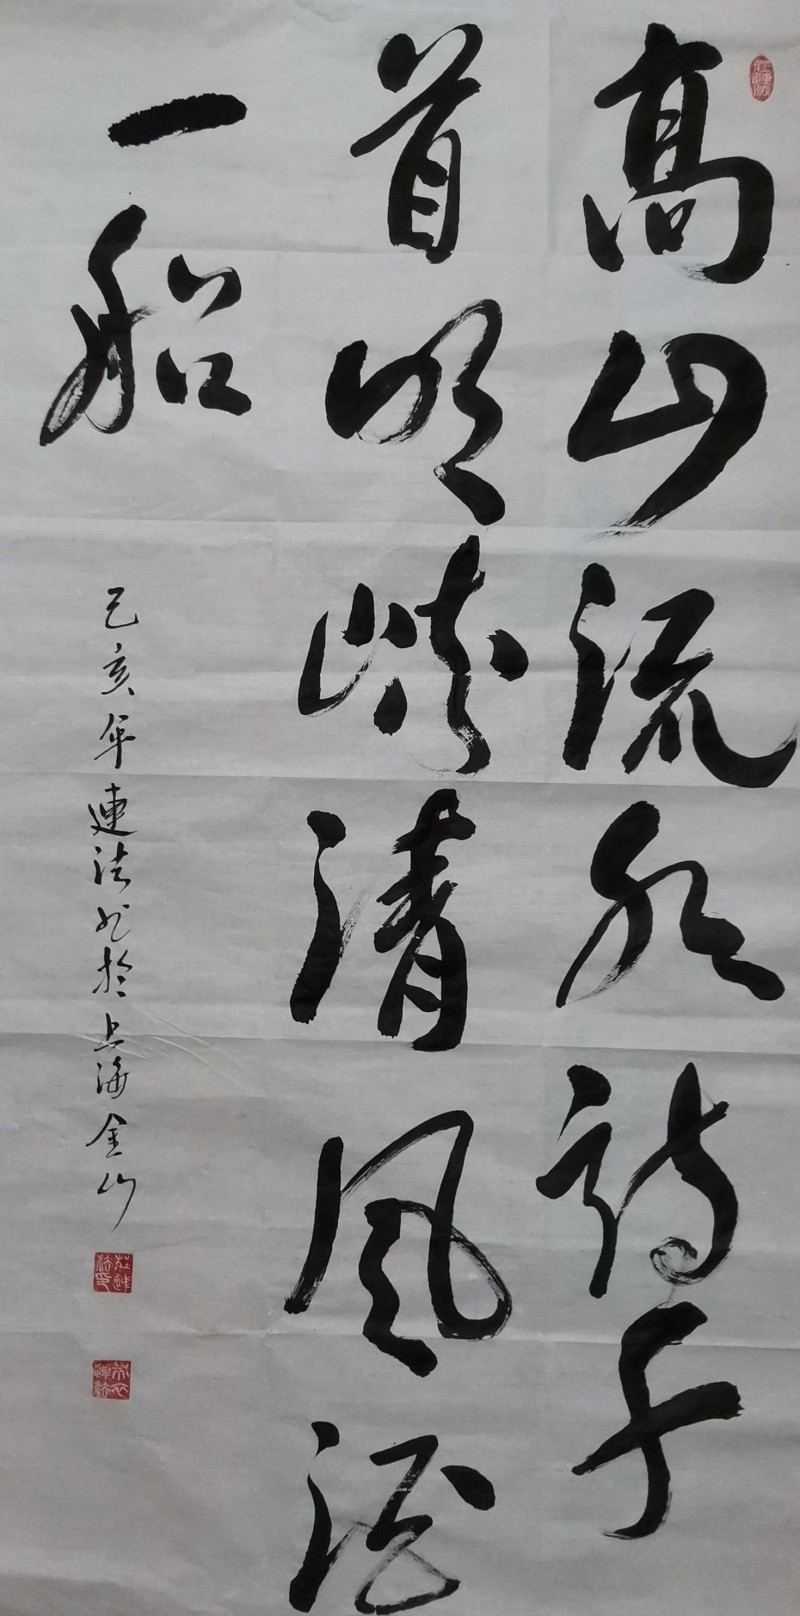 高山流水詩千
首明清風酒
一船
己亥年連法书於上海金山